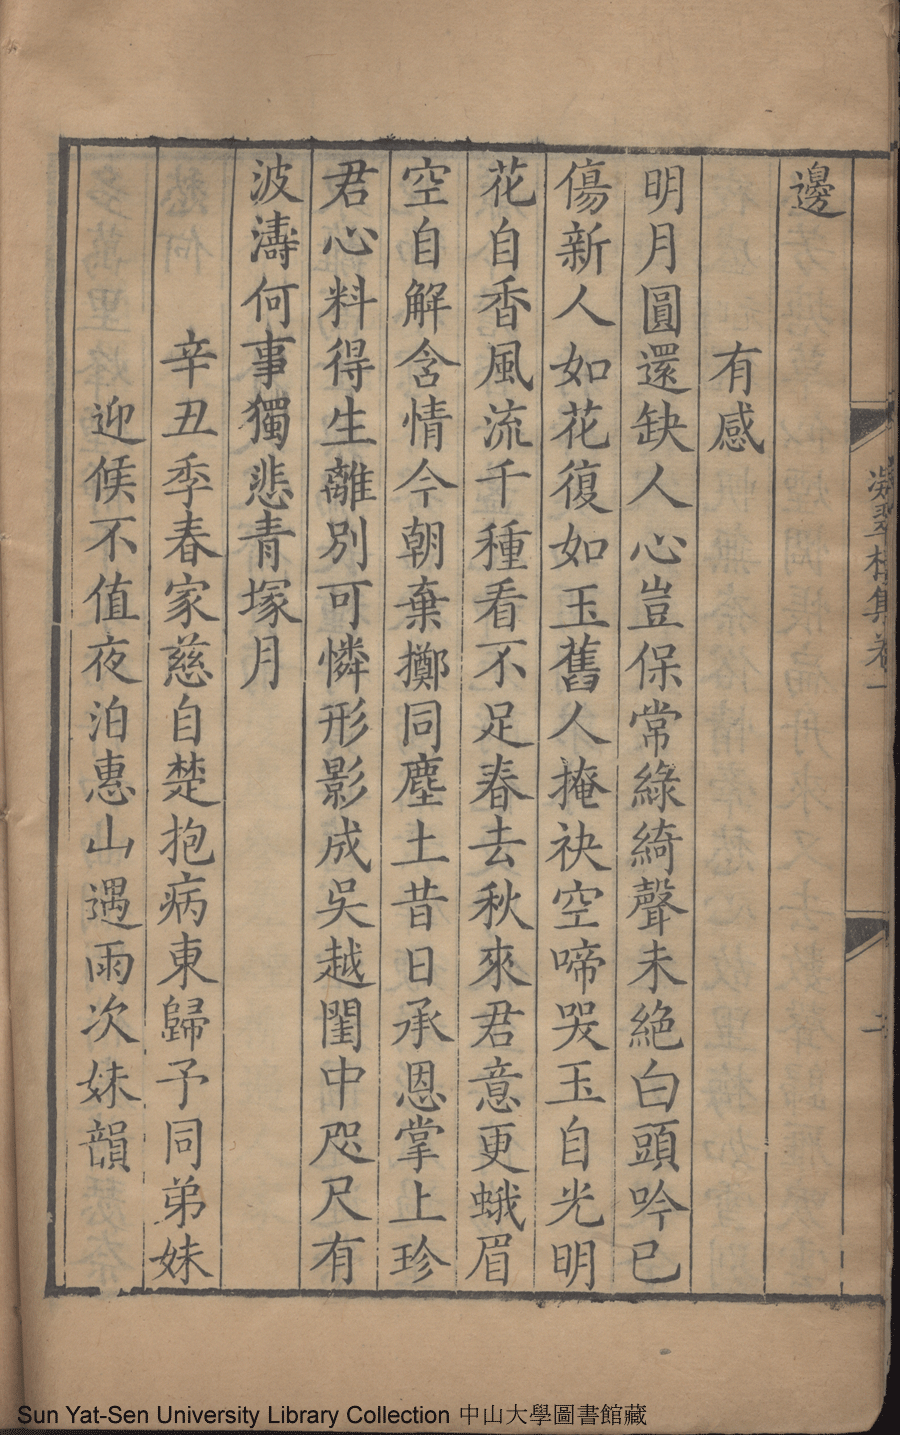 凝翠樓集卷一
二
邊
有感
明月圓還缺人心豈保常綠綺聲未絶白頭吟已
傷新人如花復如玉舊人掩袂空啼哭玉自光明
花自香風流千種看不足春去秋來君意更蛾眉
空自解含情今朝棄擲同塵土昔日承恩掌上珍
君心料得生離別可憐形影成吳越閨中咫尺有
波濤何事獨悲青塚月
辛丑季春家慈自楚抱病東歸予同弟妹
迎候不值夜泊惠山遇雨次妹韻
Sun Yat-Sen University Library Collection 中山大學圖書館藏